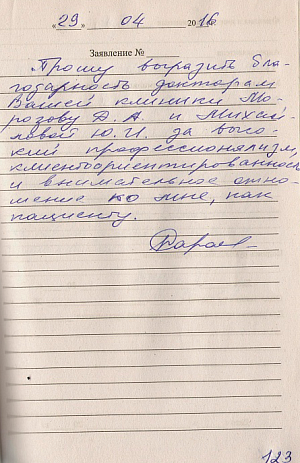 «29» 04 2016
Заявление №
Прошу выразить бла-
годарность докторам
Вашей клиники Мо-
розову Д. А. и Михай-
ловой Ю. И. за высо-
кий профессионализм,
клиентоориентированность
и внимательное отно-
шение ко мне, как
пациенту.
123